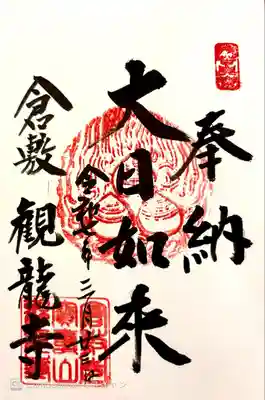 奉納
大日如来
令和七年三月廿三日
倉敷 観龍寺